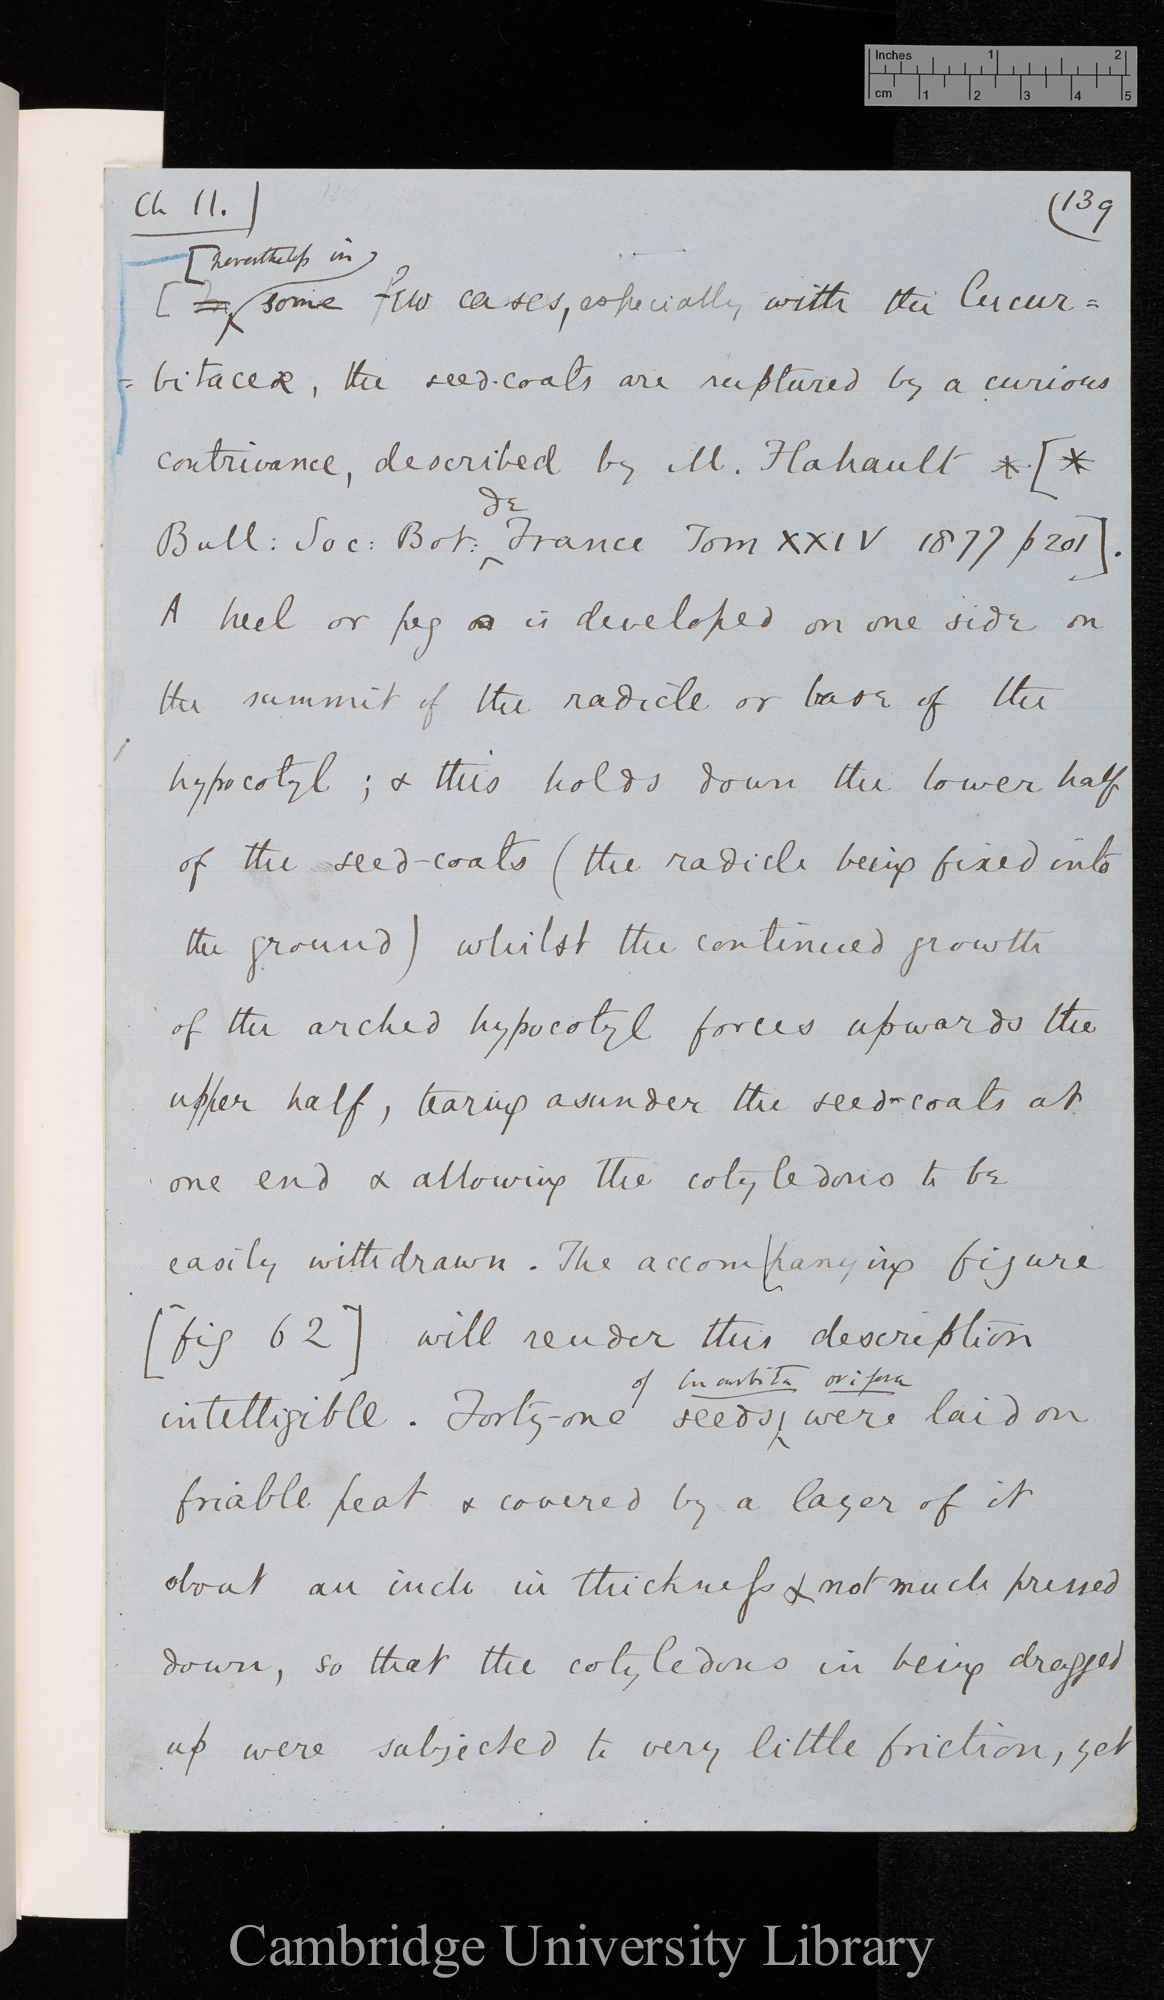 Inches 1 2
cm 1 2 3 4 5
Ch II.
(139
[Nevertheless in
[ In some few cases, especially with the Cucur=
=bitaceæ, the seed-coats are ruptured by a curious
contrivance, described by M. Flahault *[*
de
Bull: Soc: Bot: ^ France Tom XXIV 1877 p 201].
A heel or peg is developed on one side on
the summit of the radicle or base of the
hypocotyl ; & this holds down the lower half
of the seed-coats (the radicle being fixed into
the ground) whilst the continued growth
of the arched hypocotyl forces upwards the
upper half, tearing asunder the seed-coats at
one end & allowing the cotyledons to be
easily withdrawn. The accompanying figure
[fig 62] will render this description
of Cucurbita ovifera
intelligible. Forty-one seeds ^ were laid on
friable peat & covered by a layer of it
about an inch in thickness & not much pressed
down, so that the cotyledons in being dragged
up were subjected to very little friction, yet
Cambridge University Library